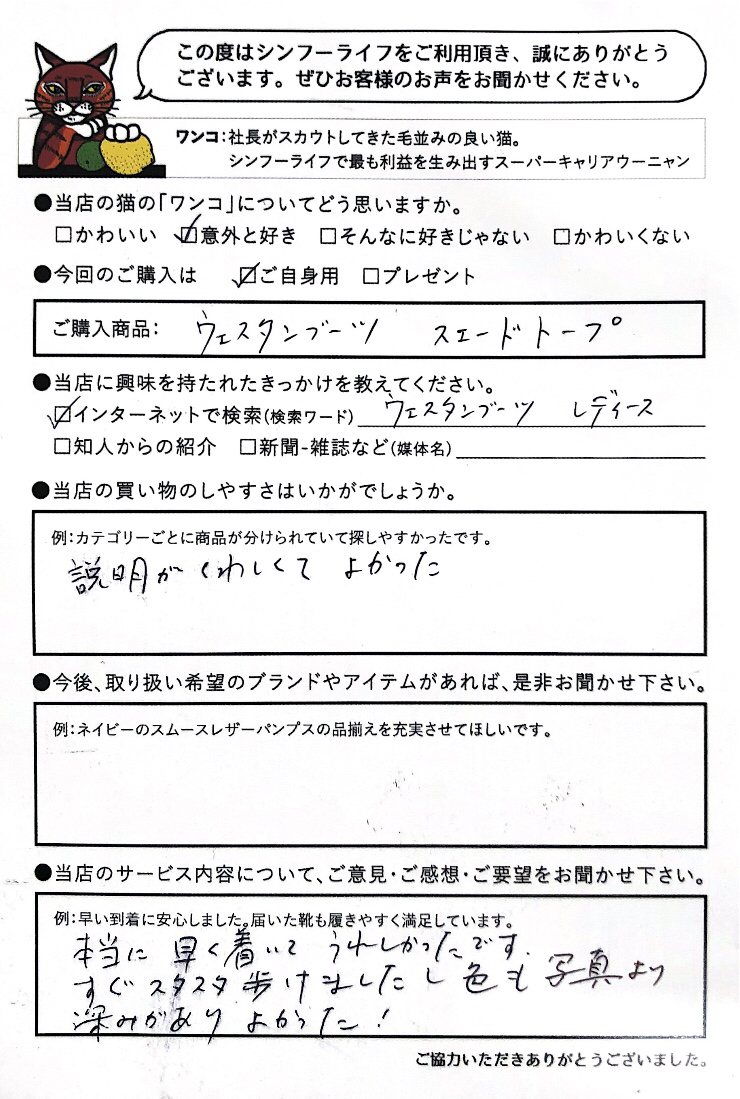 この度はシンフーライフをご利用頂き、誠にありがとう
ございます。ぜひお客様のお声をお聞かせください。
ワンコ:社長がスカウトしてきた毛並みの良い猫。
シンフーライフで最も利益を生み出すスーパーキャリアウーニャン
●当店の猫の「ワンコ」についてどう思いますか。
□かわいい ☑意外と好き □そんなに好きじゃない □かわいくない
●今回のご購入は ☑ご自身用 □プレゼント
ご購入商品: ウェスタンブーツ スエードトープ
●当店に興味を持たれたきっかけを教えてください。
☑インターネットで検索(検索ワード) ウェスタンブーツ レディース
□知人からの紹介 □新聞-雑誌など(媒体名)
●当店の買い物のしやすさはいかがでしょうか。
例:カテゴリーごとに商品が分けられていて探しやすかったです。
説明がくわしくて よかった
●今後、取り扱い希望のブランドやアイテムがあれば、是非お聞かせ下さい。
例:ネイビーのスムースレザーパンプスの品揃えを充実させてほしいです。
●当店のサービス内容について、ご意見・ご感想・ご要望をお聞かせ下さい。
例:早い到着に安心しました。届いた靴も履きやすく満足しています。
本当に 早く着いて うれしかったです.
すぐ スタスタ 歩けましたし 色も 写真より
深みがあり よかった!
ご協力いただきありがとうございました。